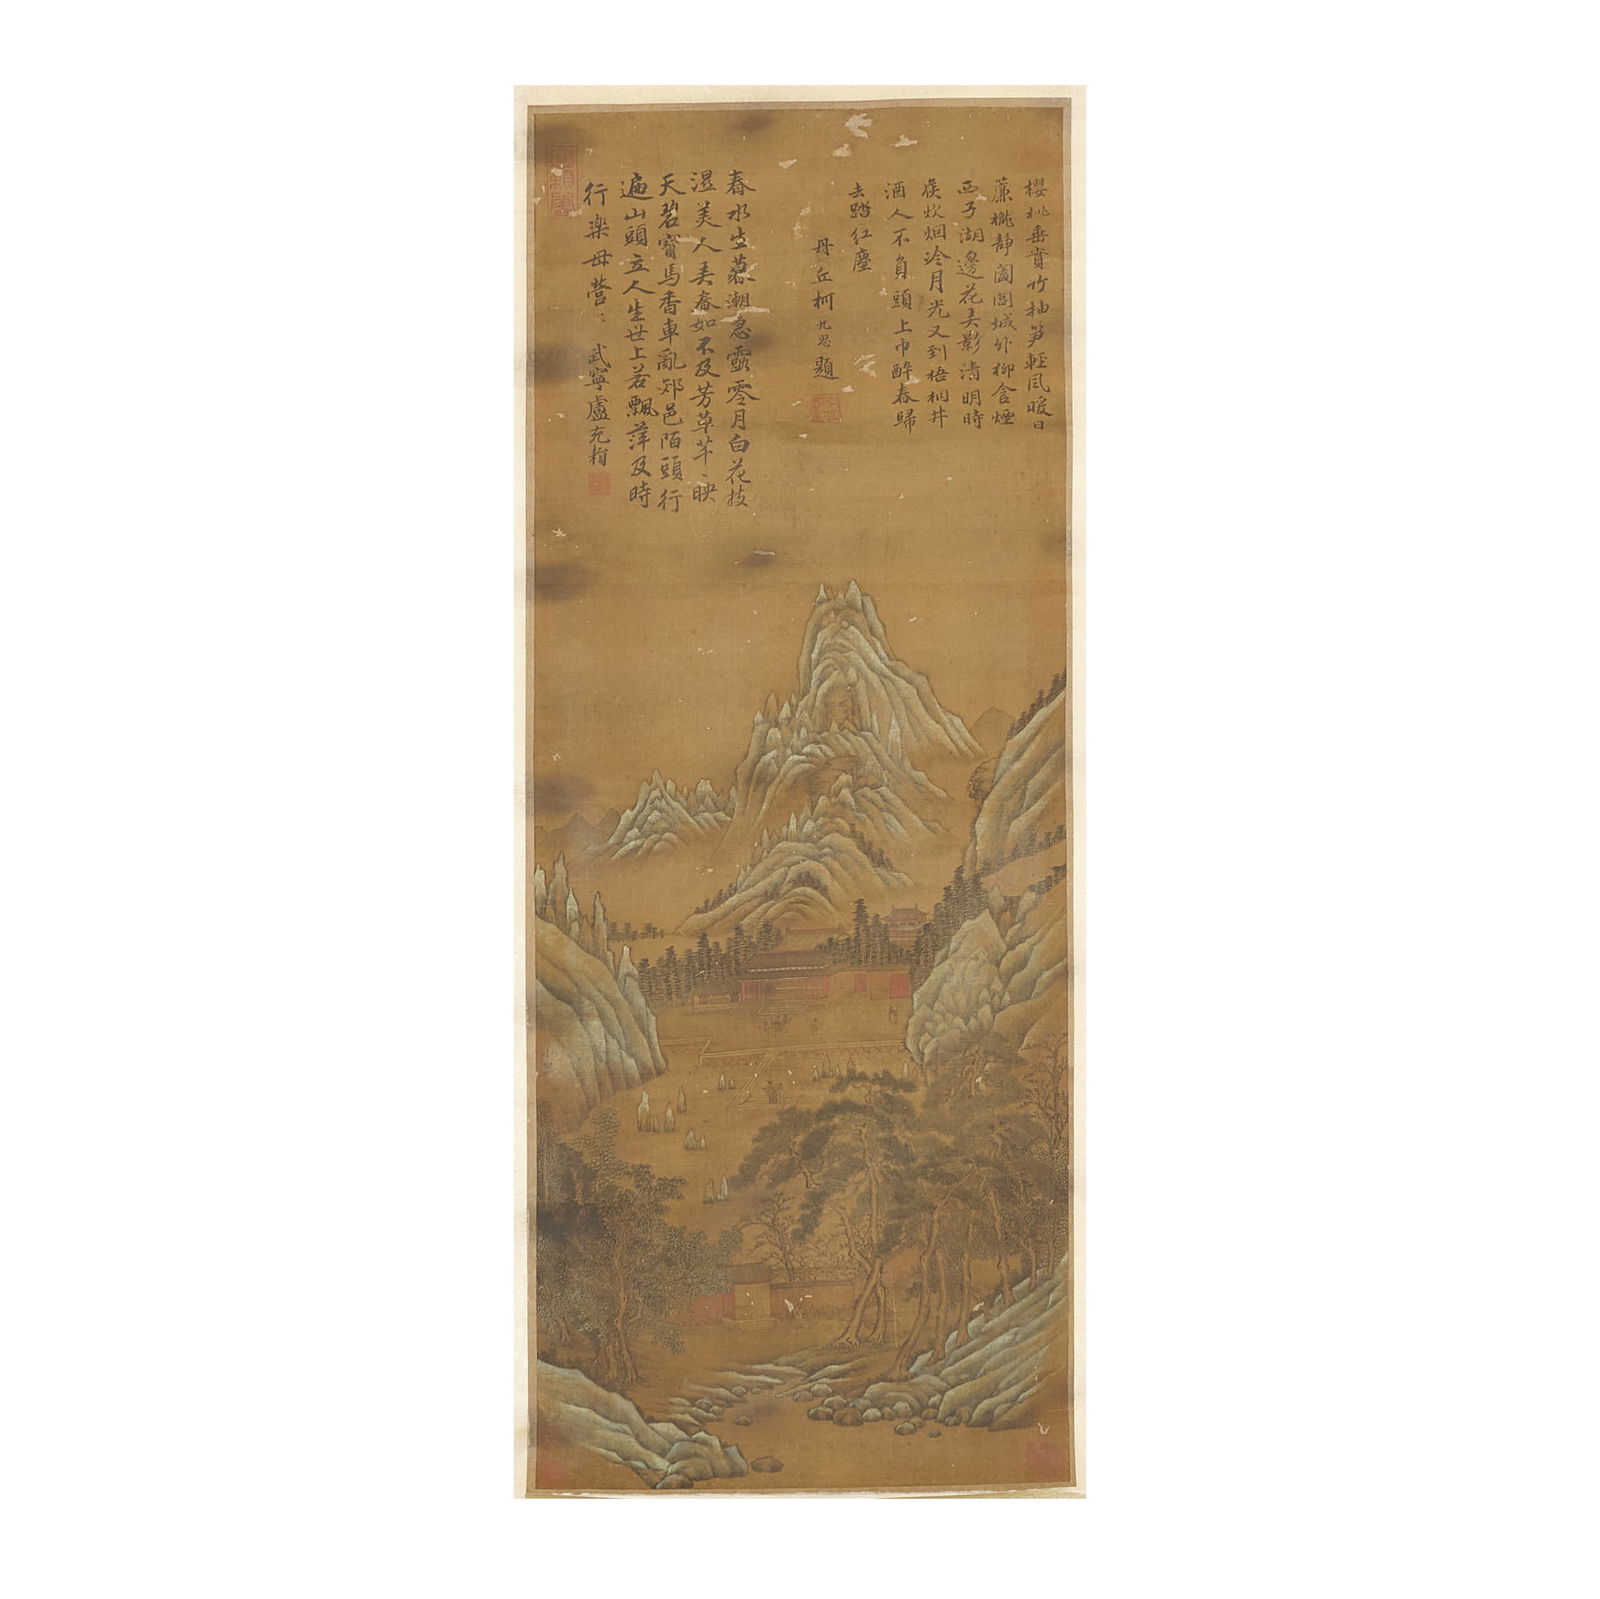 櫻桃垂實竹抽笋輕風暖日
簾櫳靜闔閭城外柳含煙
西子湖邊花弄影清明時
侯炊烟冷月光又到梧桐井
酒人不負頭上巾醉春歸
去踏紅塵
丹丘柯九思題
春水生暮潮急露零月白花技
濕美人弄春如不及芳草芊〻映
天碧寳馬香車亂郊邑陌頭行
遍山頭立人生世上若飄萍及時
行樂毋營〻 武寧盧充頖